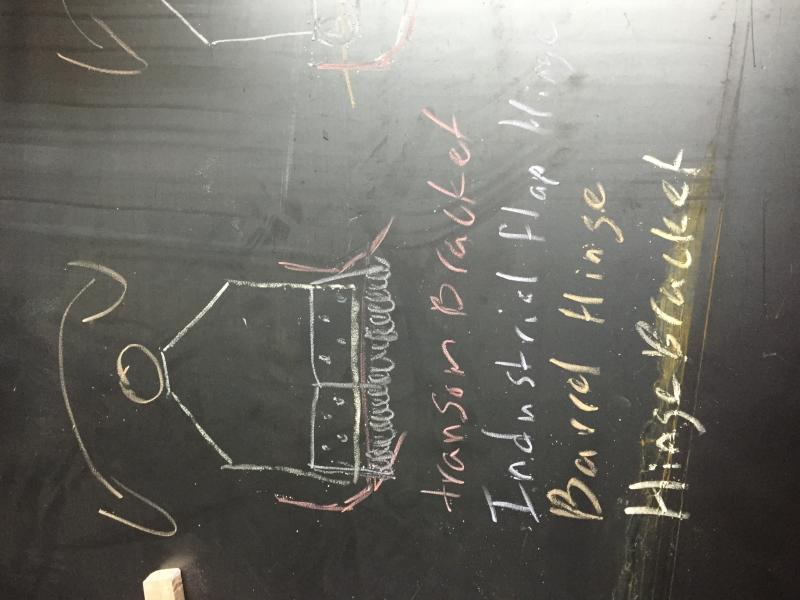 transom Bracket
Industrial flap Hinge
Barrel Hinge
Hinge Bracket